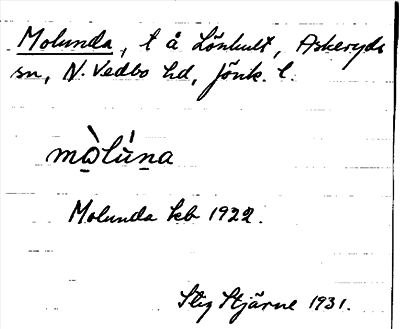 Molunda, t å Lönhult, Askeryds
sn, N. Vedbo hd, Jönk. l.
mo̱̊̀lú̱na
Molunda kb 1922.
Stig Stjärne 1931.